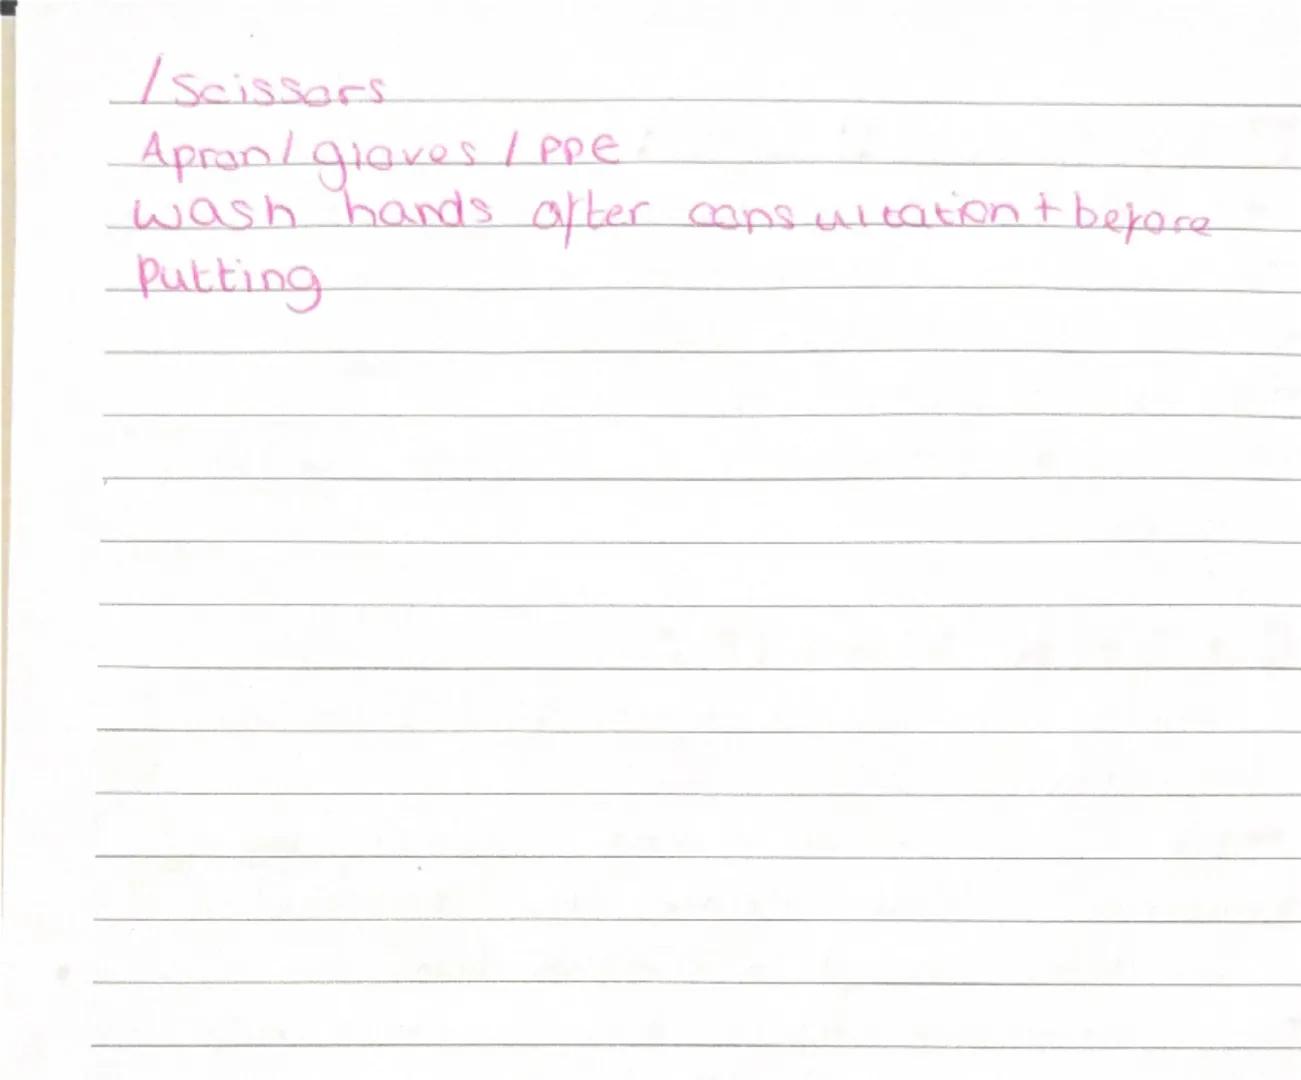 /Scissors
Apron/gloves/PPE
wash hands after consultation + before
putting